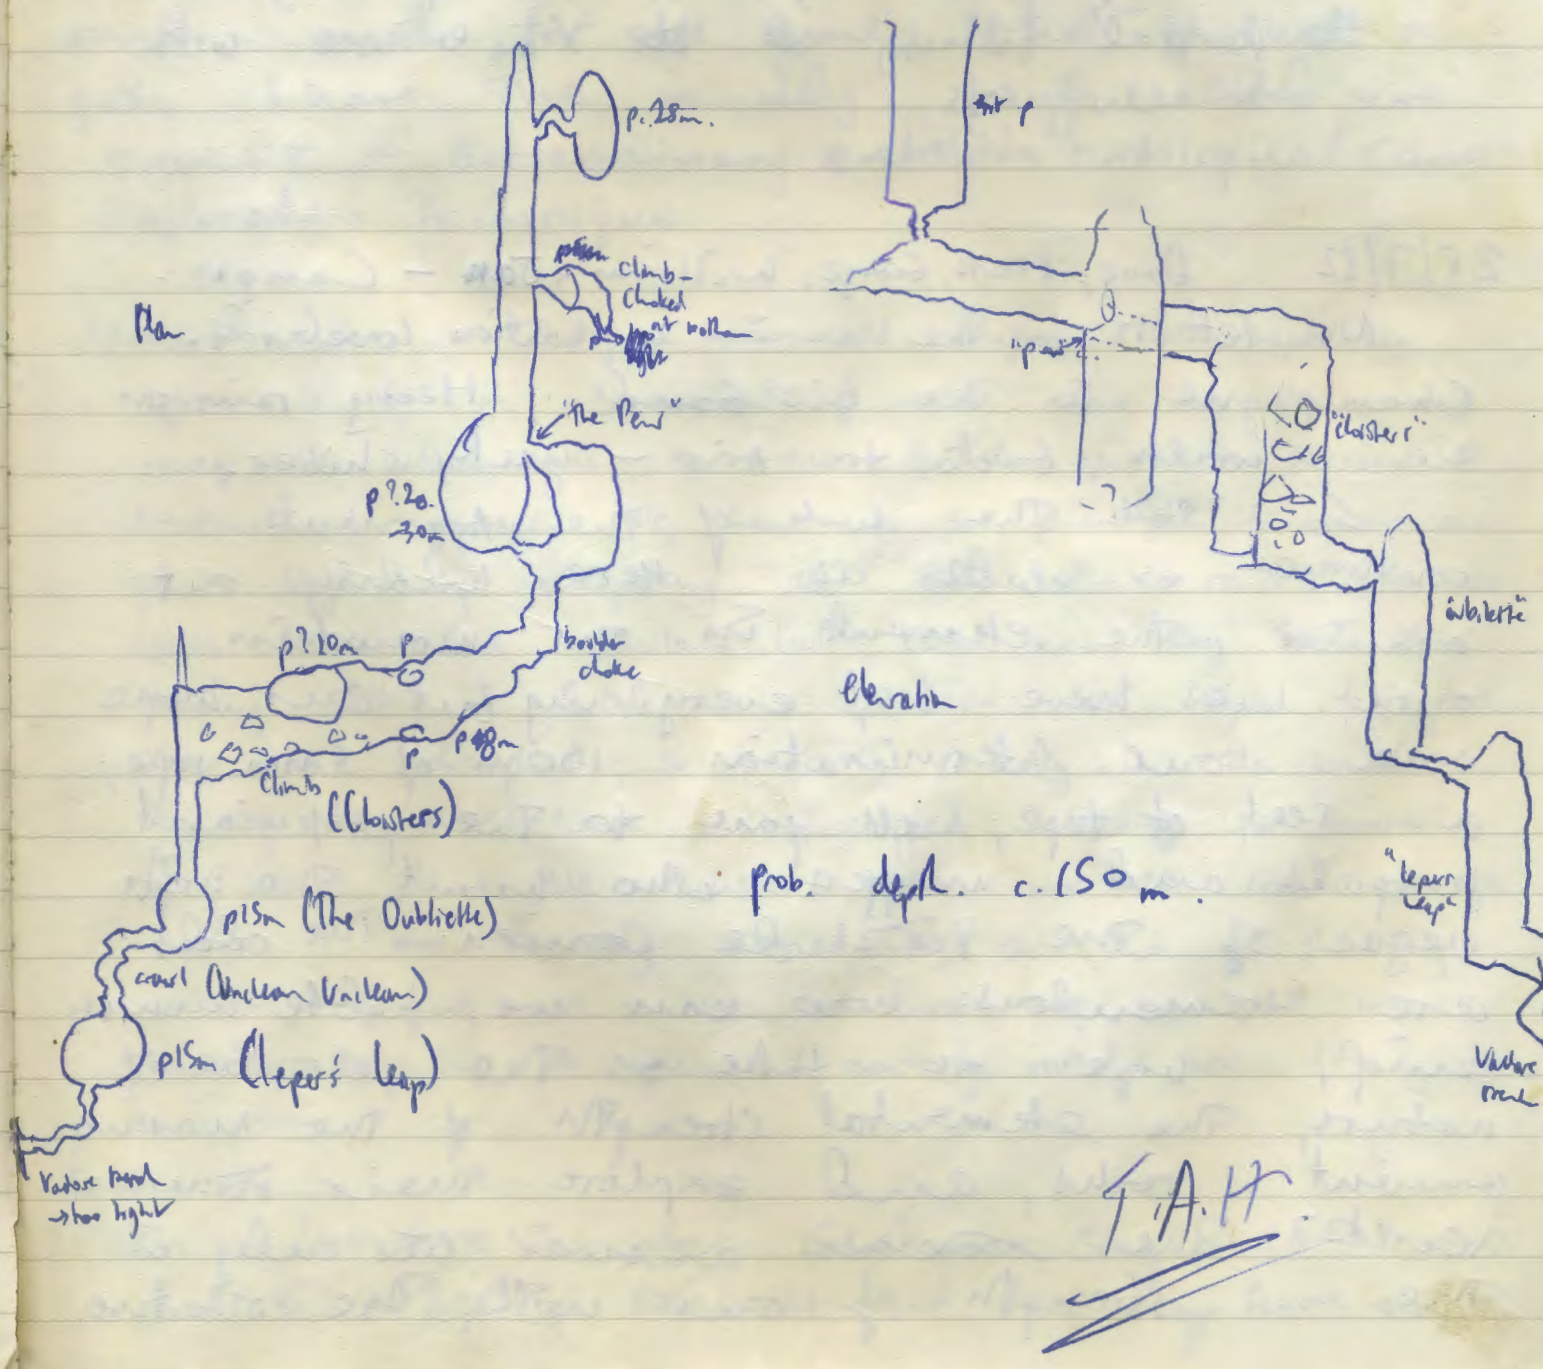 Plan
p.28m.
climb-
choked
at bottom
"The Pew"
p?20-
30m
boulder
choke
p?20m
p
p
p18m
Climb
(Cloisters)
p15m (The Oubliette)
crawl (Unclean Unclean)
p15m (Leper's Leap)
Vadose trench
→ too tight
ent p
"pew"
?
"cloisters"
"oubliette"
elevation
prob. depth. c. 150m.
"Lepers
Leap"
Vadose
trench
T.A.H.